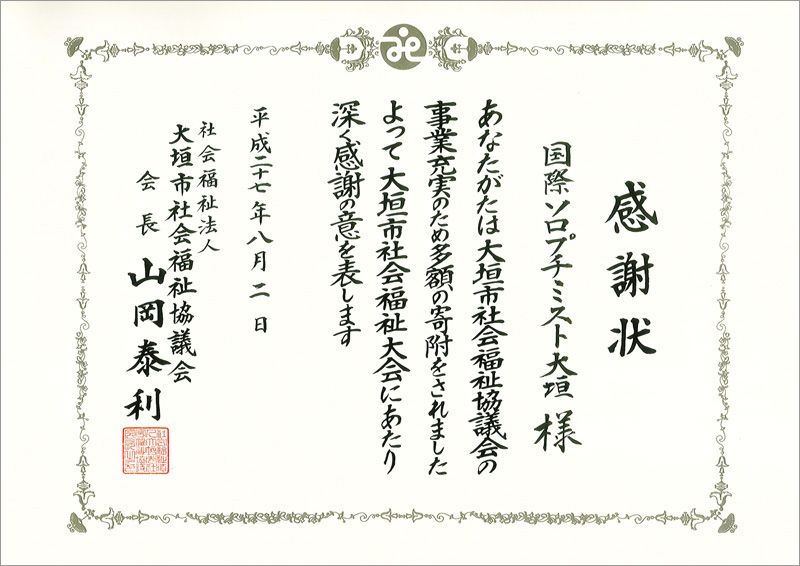 感謝状
国際ソロプチミスト大垣 様
あなたがたは大垣市社会福祉協議会の
事業充実のため多額の寄附をされました
よって大垣市社会福祉大会にあたり
深く感謝の意を表します
平成二十七年八月二日
社会福祉法人
大垣市社会福祉協議会
会長 山岡泰利